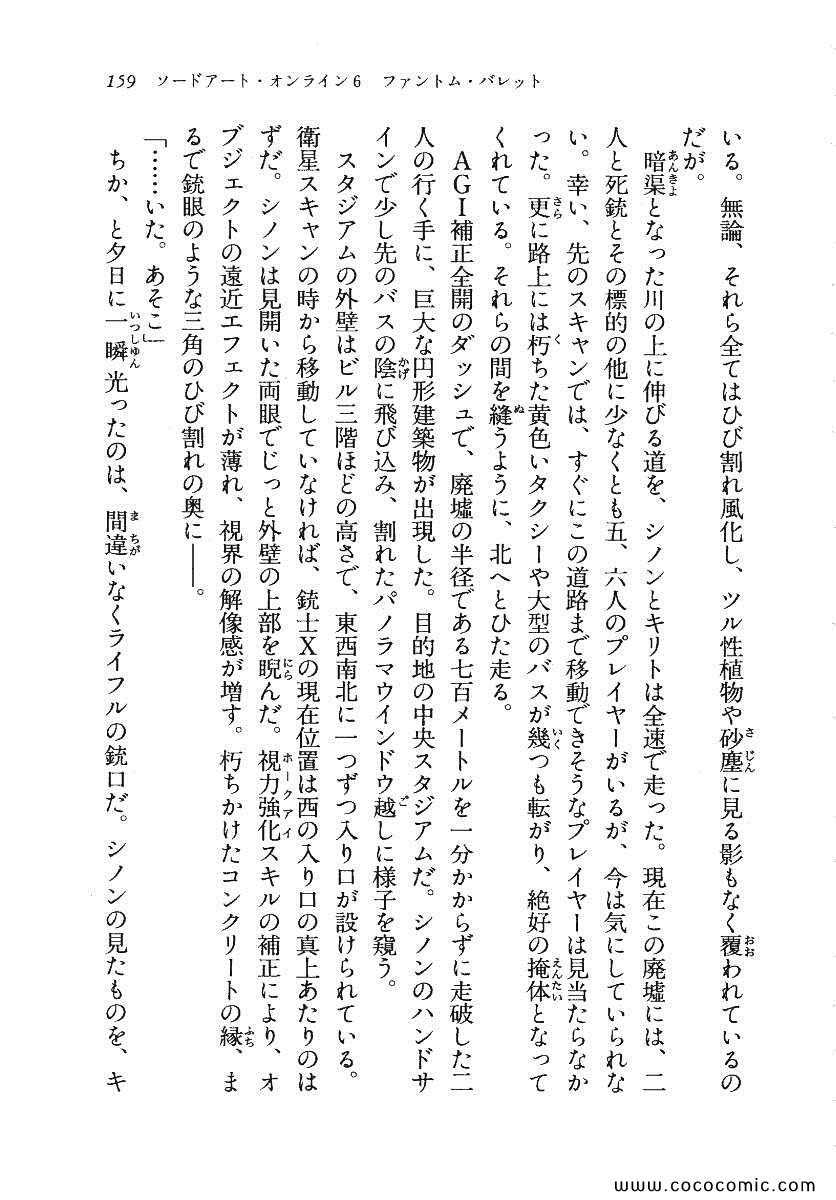 159 ソードアート・オンライン6 ファントム・バレット
いる。無論、それら全てはひび割れ風化し、ツル性植物や砂塵に見る影もなく覆われているの
だが。
暗渠となった川の上に伸びる道を、シノンとキリトは全速で走った。現在この廃墟には、二
人と死銃とその標的の他に少なくとも五、六人のプレイヤーがいるが、今は気にしていられな
い。幸い、先のスキャンでは、すぐにこの道路まで移動できそうなプレイヤーは見当たらなか
った。更に路上には朽ちた黄色いタクシーや大型のバスが幾つも転がり、絶好の掩体となって
くれている。それらの間を縫うように、北へとひた走る。
AGI補正全開のダッシュで、廃墟の半径である七百メートルを一分かからずに走破した二
人の行く手に、巨大な円形建築物が出現した。目的地の中央スタジアムだ。シノンのハンドサ
インで少し先のバスの陰に飛び込み、割れたパノラマウインドウ越しに様子を窺う。
スタジアムの外壁はビル三階ほどの高さで、東西南北に一つずつ入り口が設けられている。
衛星スキャンの時から移動していなければ、銃士Xの現在位置は西の入り口の真上あたりのは
ずだ。シノンは見開いた両眼でじっと外壁の上部を睨んだ。視力強化スキルの補正により、オ
ブジェクトの遠近エフェクトが薄れ、視界の解像感が増す。朽ちかけたコンクリートの縁、ま
るで銃眼のような三角のひび割れの奥に――。
「……いた。あそこ」
ちか、と夕日に一瞬光ったのは、間違いなくライフルの銃口だ。シノンの見たものを、キ
www.cococomic.com